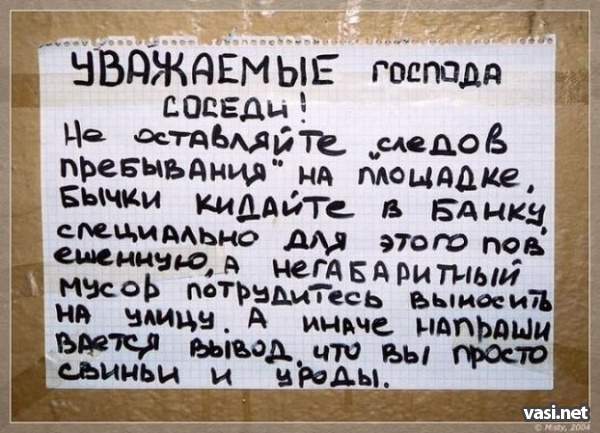 УВАЖАЕМЫЕ ГОСПОДА
СОСЕДИ!
Не ОСТАВЛЯЙТЕ „СЛЕДОВ
ПРЕБЫВАНИЯ" НА ПЛОЩАДКЕ,
БЫЧКИ КИДАЙТЕ В БАНКУ,
СПЕЦИАЛЬНО ДЛЯ ЭТОГО ПОВ
ЕШЕННУЮ, А НЕГАБАРИТНЫЙ
МУСОР ПОТРУДИТЕСЬ ВЫНОСИТЬ
НА УЛИЦУ. А ИНАЧЕ НАПРАШИ
ВАЕТСЯ ВЫВОД, ЧТО ВЫ ПРОСТО
СВИНЬИ И УРОДЫ.
vasi.net
© Misty, 2004